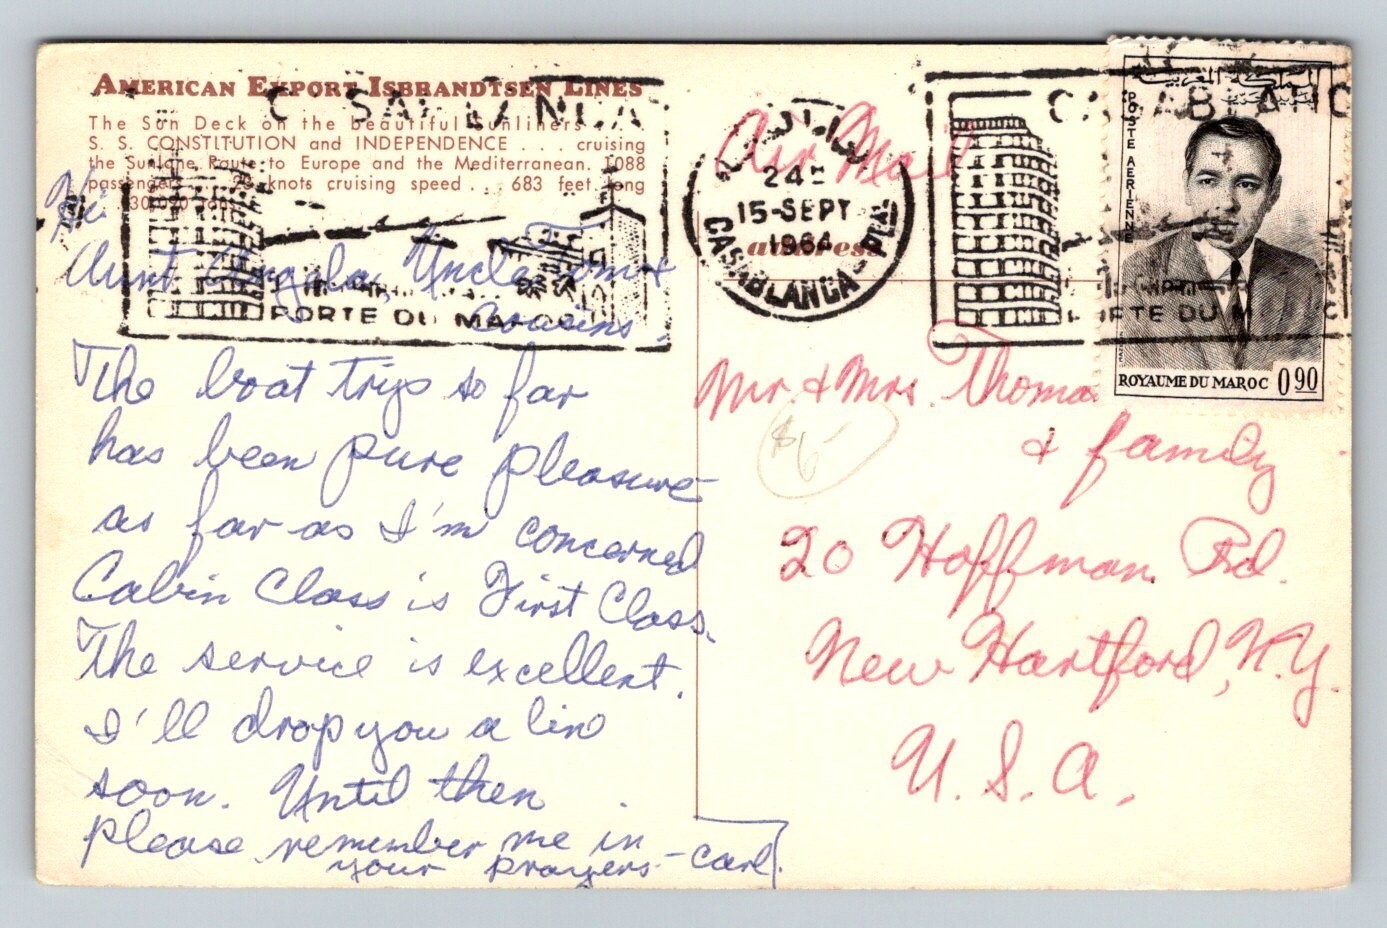 AMERICAN EXPORT ISBRANDTSEN LINES
The Sun Deck on the beautiful Sunliners . . .
S. S. CONSTITUTION and INDEPENDENCE . . . cruising
the Sunlane Route to Europe and the Mediterranean. 1088
passengers . . . knots cruising speed . . . 683 feet long
Hi
Aunt Angela, Uncle Tom &
Cousins.
The boat trip so far
has been pure pleasure
as far as I'm concerned
Cabin Class is First Class.
The service is excellent.
I'll drop you a line
soon. Until then
please remember me in
your prayers - Carl.
CASABLANCA
PORTE DU MAROC
Air Mail
15-SEPT
1964
CASABLANCA-
address
CASABLANC
PORTE DU M
POSTE AERIENNE
ROYAUME DU MAROC 0.90
Mr & Mrs. Thoma
& family
$6-
20 Hoffman Rd.
New Hartford, N.Y.
U.S.A.